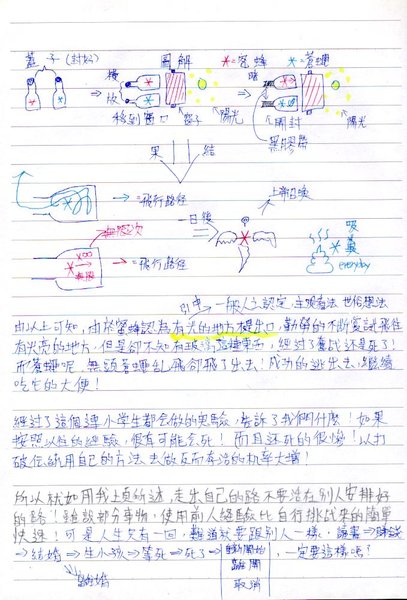 蓋子(封好)
圖解
*=蜜蜂 *=蒼蠅
橫放
移到窗口
窗子
陽光
開封
黑膠帶
陽光
結果
→=飛行路徑
無限次
→=飛行路徑
一日後
上帝召喚
吸糞
everyday
一般人之認定,主觀看法 世俗想法
由以上可知,由於蜜蜂認為有光的地方是出口,勤勞的不斷嘗試飛往
有光亮的地方,但是卻不知有玻璃這種東西,
而蒼蠅呢 無頭蒼蠅亂飛卻飛了出去!成功的逃出去,繼續
吃它的大便!
經過了這個連小學生都會做的實驗,告訴了我們什麼!如果
按照以往的經驗,很有可能會死!而且還死的很慘!以打
破傳統用自己的方法去做反而存活的机率大增!
所以就如用我上頁所述,走出自己的路不要活在別人安排好
的路!雖說部分事物,使用前人經驗比自行摸試來的簡單
快速!可是人生只有一回,難道就要跟別人一樣,讀書→賺錢
→結婚→生小孩→等死→死了→
離開
取消
,一定要這樣嗎?
離婚